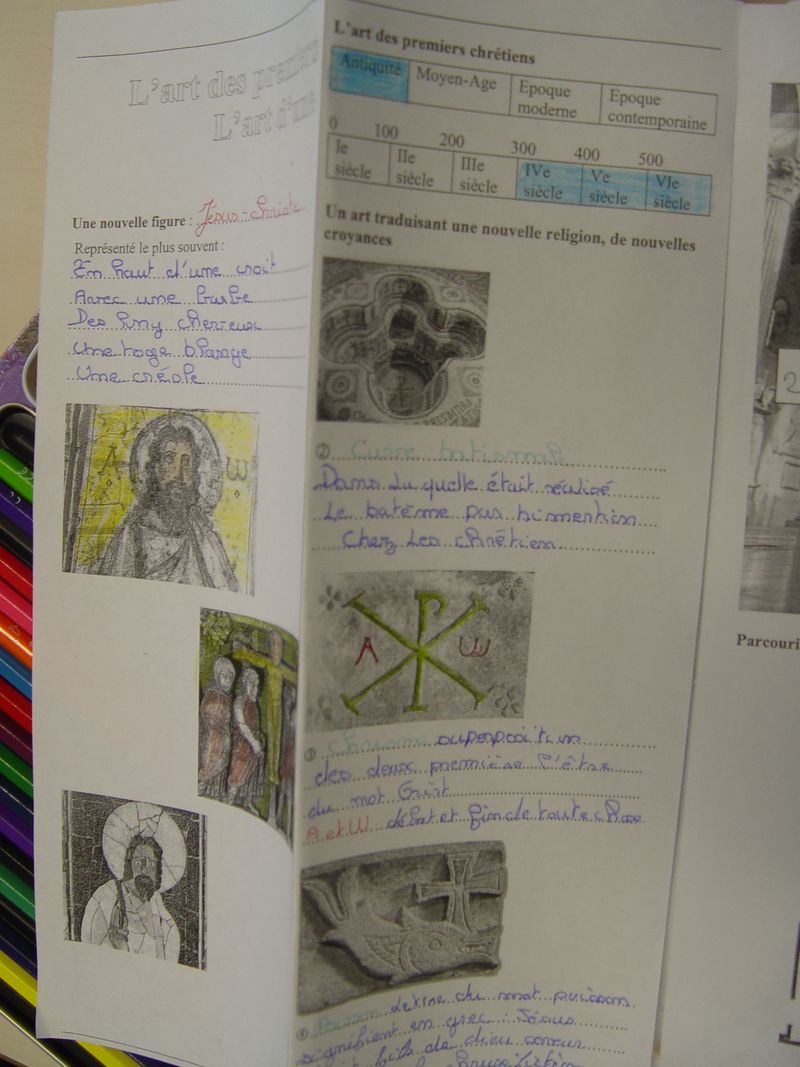 L'art des premiers
L'art d'une
Une nouvelle figure : Jésus-Christe
Représenté le plus souvent :
En haut d'une croit
Avec une barbe
Des long cheveux
Une toge blange
Une créole
A ω
L'art des premiers chrétiens
Antiquité Moyen-Age Epoque moderne Epoque contemporaine
0 100 200 300 400 500
Ie siècle IIe siècle IIIe siècle IVe siècle Ve siècle VIe siècle
Un art traduisant une nouvelle religion, de nouvelles
croyances
② Cuve batismale
Dans la quelle était réalisé
Le batéme par
Chez Les chrétien
A P ω
③ Chrisme superpositin
des deux première l'être
du mot Crist
A et W début et fin de toute chose
④ Poisson Letre du mot poisson
signifient en grec : Jésus
fils de dieu
2
Parcouri